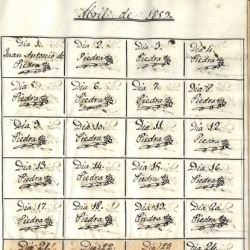 Abril de 1852.
Dia 1. Dia 2. Dia 3. Dia 4.
Juan Antonio de Piedra Piedra Piedra Piedra
Dia 5. Dia 6. Dia 7. Dia 8.
Piedra Piedra Piedra Piedra
Dia 9. Dia 10. Dia 11. Dia 12.
Piedra Piedra Piedra Piedra
Dia 13. Dia 14. Dia 15. Dia 16.
Piedra Piedra Piedra Piedra
Dia 17. Dia 18. Dia 19. Dia 20.
Piedra Piedra Piedra Piedra
Dia 21. Dia 22. Dia 23. Dia 24.